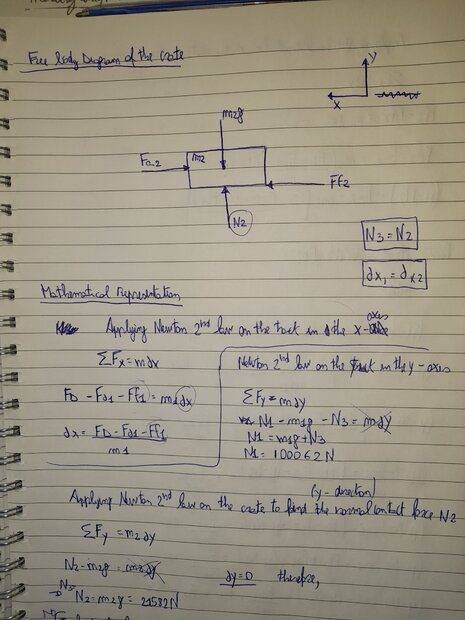 Free body Diagram of the crate
y
x
m2g
Fa2
m2
Ff2
N2
N3 = N2
ax1 = ax2
Mathematical Representation
Applying Newton 2nd law on the truck in the x- axes
ΣFx = max
FD - Fd1 - Ff1 = m1ax
ax = FD - Fd1 - Ff1
m1
Newton 2nd law on the truck in the y-axes
ΣFy = may
N1 - m1g - N3 = may
N1 = m1g + N3
N1 = 100062N
(y-direction)
Applying Newton 2nd law on the crate to find the normal contact force N2
ΣFy = m2ay
N2 - m2g = m2ay
ay = 0 therefore,
N3
N2 = m2g = 21582N